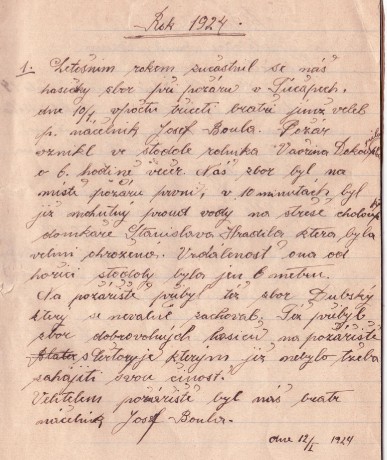 Rok 1924.
1. Letošním rokem zúčastnil se náš
hasičský sbor při požáru v Tučapech,
dne 10/1 v počtu třiceti bratrů jimž velel
p. náčelník Josef Boula. Požár
vznikl ve stodole rolníka Vavřina
o 6. hodině večer. Náš sbor byl na
místě požáru první, v 10 minutách byl
již mohutný proud vody na střeše
domkaře Stanislava Hradila která byla
velmi ohrožena. Vzdálenost ona od
hořící stodoly byla jen 6 metrů.
Na požářiště přibyl též sbor Dubský
který se nevalně zachoval. Též přibyl
sbor dobrovolných hasičů na požářiště
s Tertoryje kterým již nebylo třeba
zahájiti svou činost.
Velitelem požářiště byl náš bratr
náčelník Josef Boula.
dne 12/I 1924